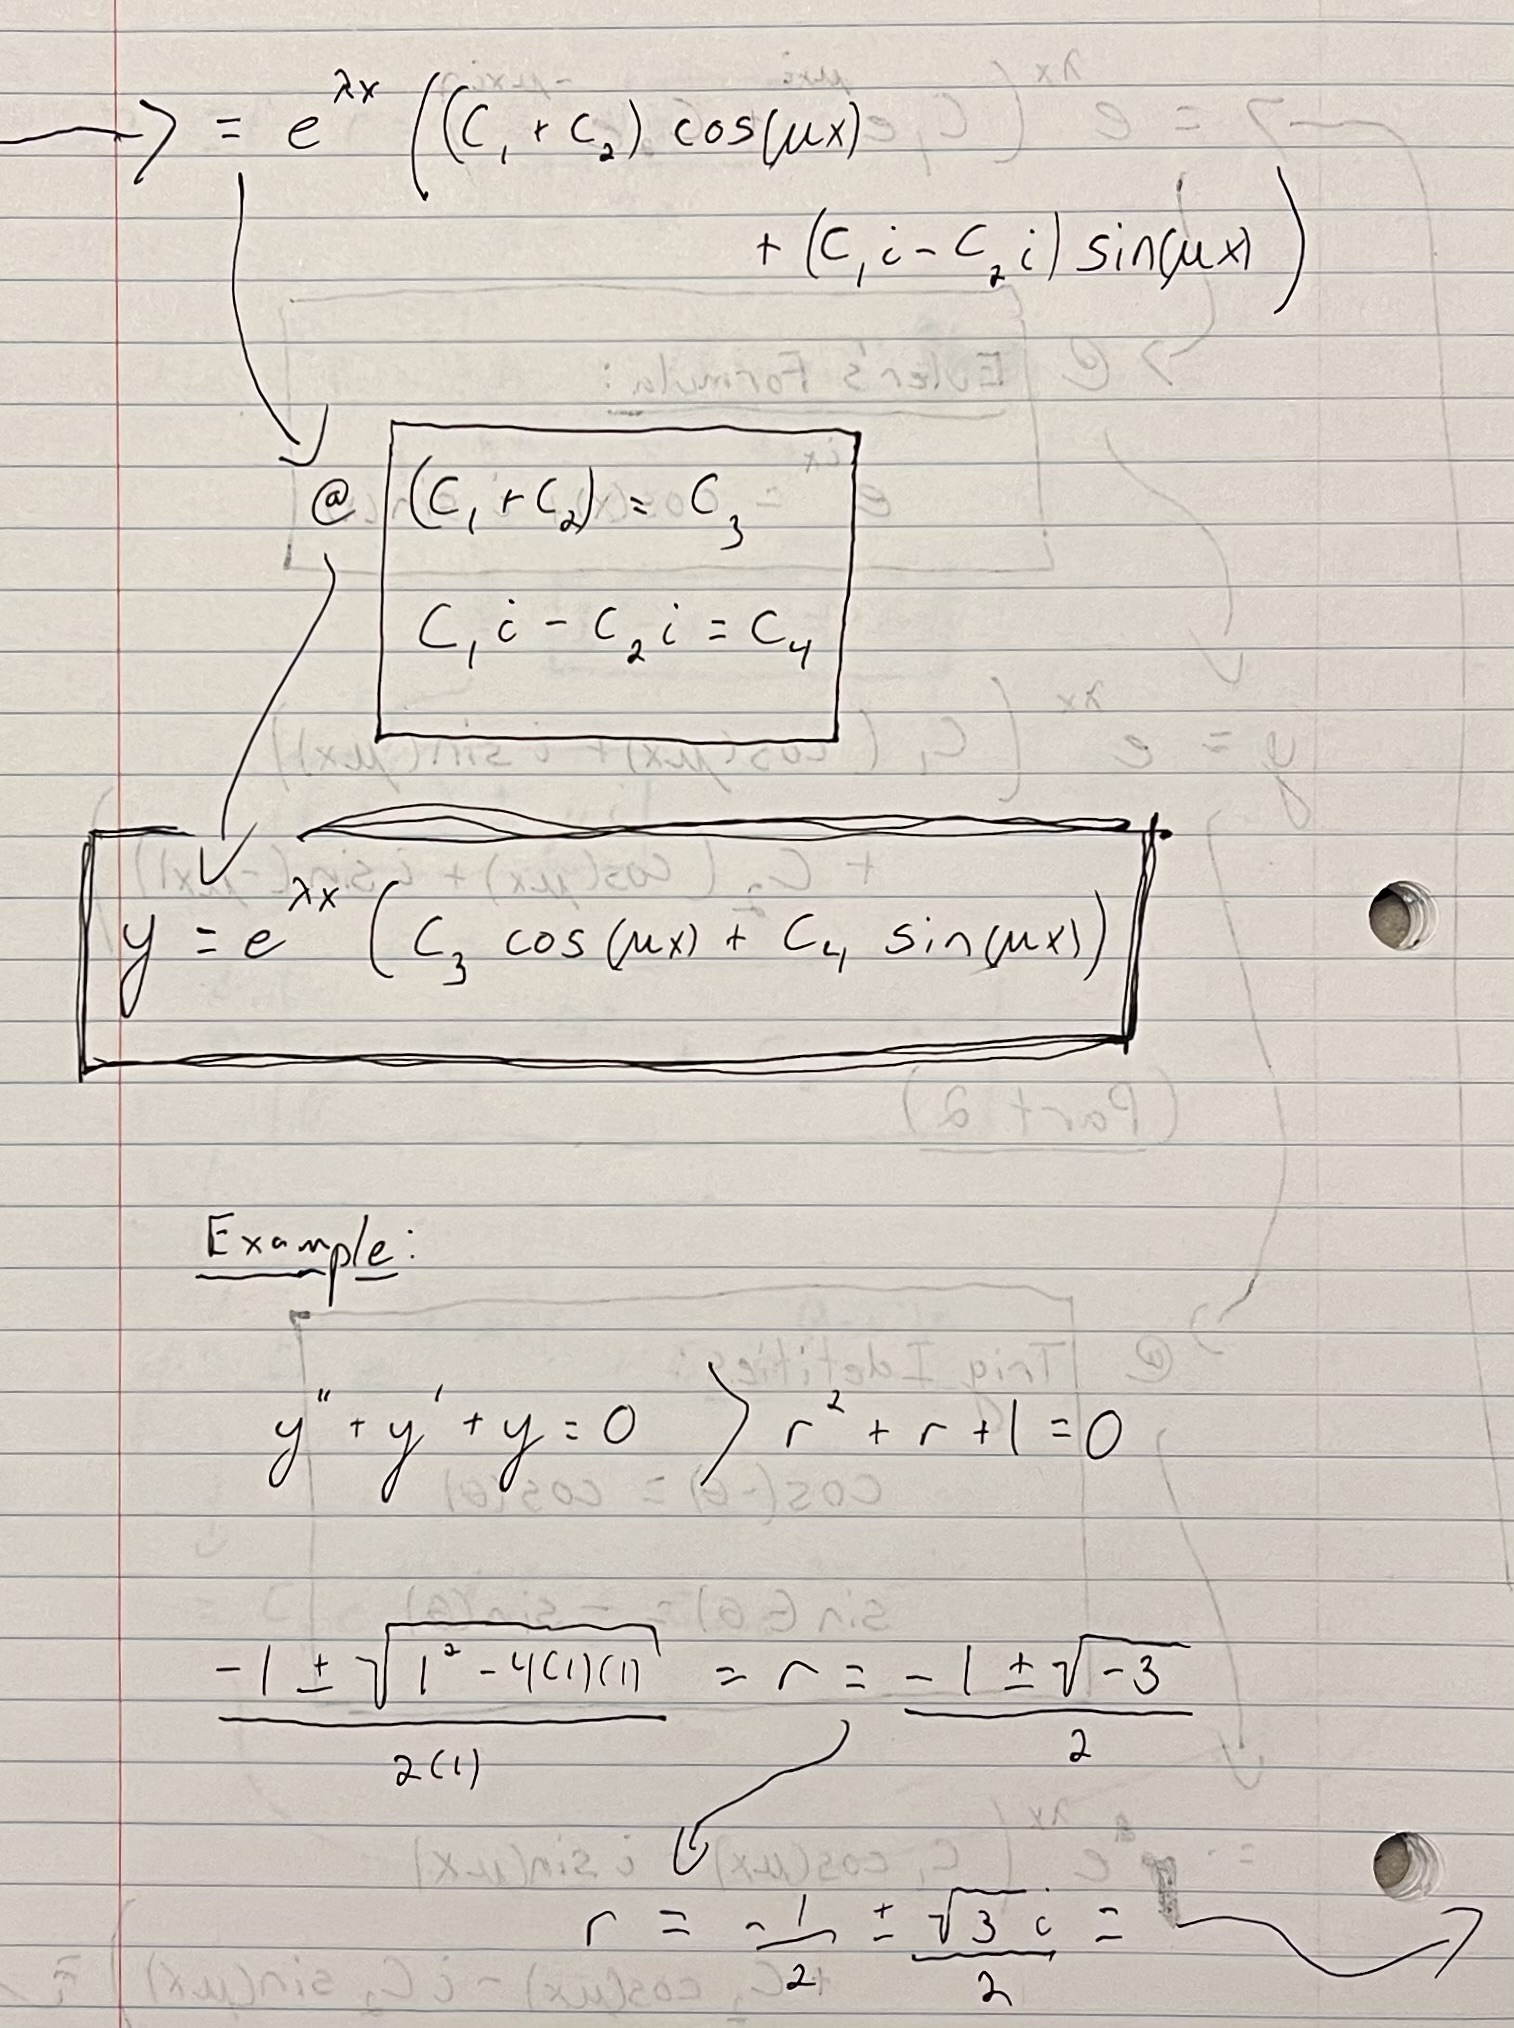 = e^λx ((C₁ + C₂) cos(μx)
+ (C₁i - C₂i) sin(μx))
@ (C₁ + C₂) = C₃
C₁i - C₂i = C₄
y = e^λx (C₃ cos(μx) + C₄ sin(μx))
Example:
y'' + y' + y = 0 > r² + r + 1 = 0
(-1 ± √(1² - 4(1)(1)))/2(1) = r = (-1 ± √-3)/2
r = -1/2 ± √3 i/2 =